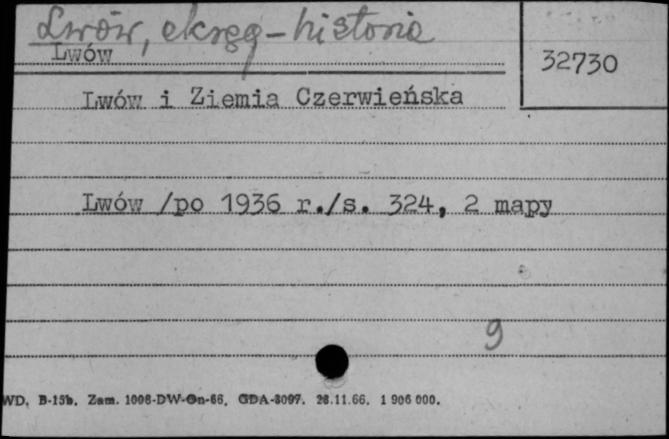 Lwów, okręg - historia
Lwów
32730
Lwów i Ziemia Czerwieńska
Lwów /po 1936 r./s. 324, 2 mapy
9
WD. B-15b. Zam. 1008-DW-Gn-66. GDA-3097. 28.11.66. 1 906 000.